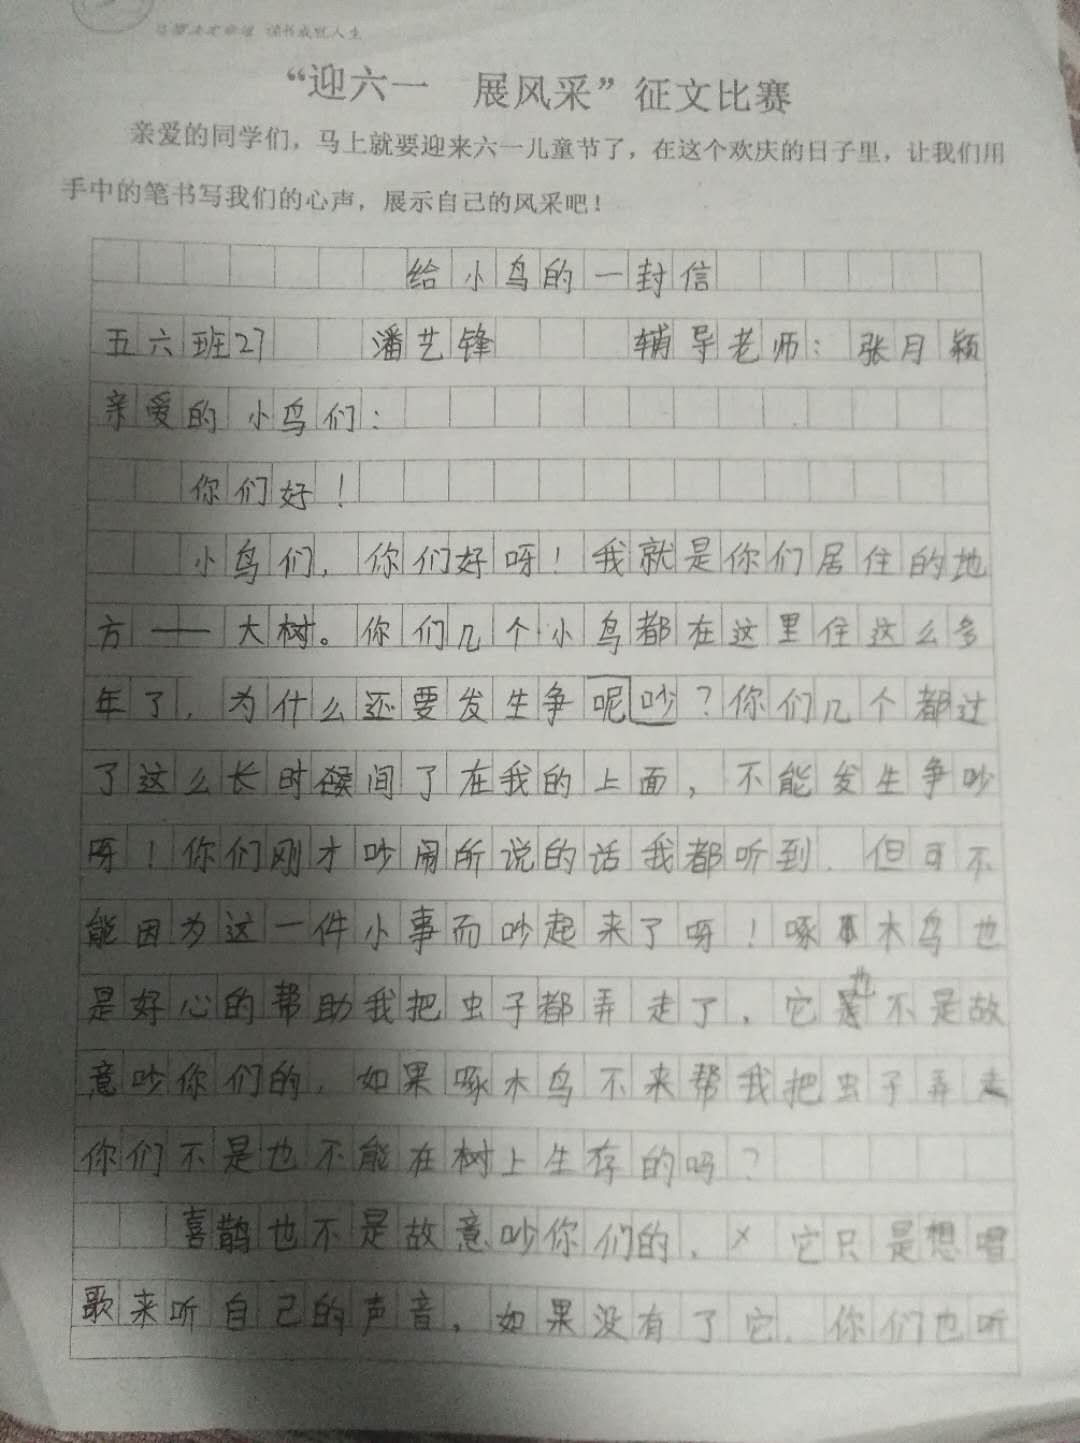 读书成就人生
“迎六一 展风采”征文比赛
亲爱的同学们，马上就要迎来六一儿童节了，在这个欢庆的日子里，让我们用
手中的笔书写我们的心声，展示自己的风采吧！
给小鸟的一封信
五六班27 潘艺锋 辅导老师：张月颖
亲爱的小鸟们：
你们好！
小鸟们，你们好呀！我就是你们居住的地
方——大树。你们几个小鸟都在这里住这么多
年了，为什么还要发生争呢吵？你们几个都过
了这么长时间了在我的上面，不能发生争吵
呀！你们刚才吵闹所说的话我都听到．但可不
能因为这一件小事而吵起来了呀！啄木鸟也
是好心的帮助我把虫子都弄走了，它也不是故
意吵你们的，如果啄木鸟不来帮我把虫子弄走
你们不是也不能在树上生存的吗？
喜鹊也不是故意吵你们的，它只是想唱
歌来听自己的声音，如果没有了它．你们也听